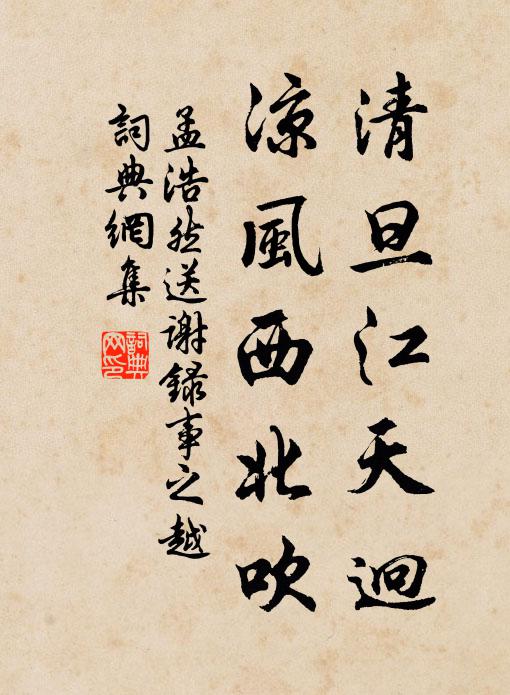 清旦江天迥
凉風西北吹
孟浩然送謝録事之越
詞典網集
詞典网印